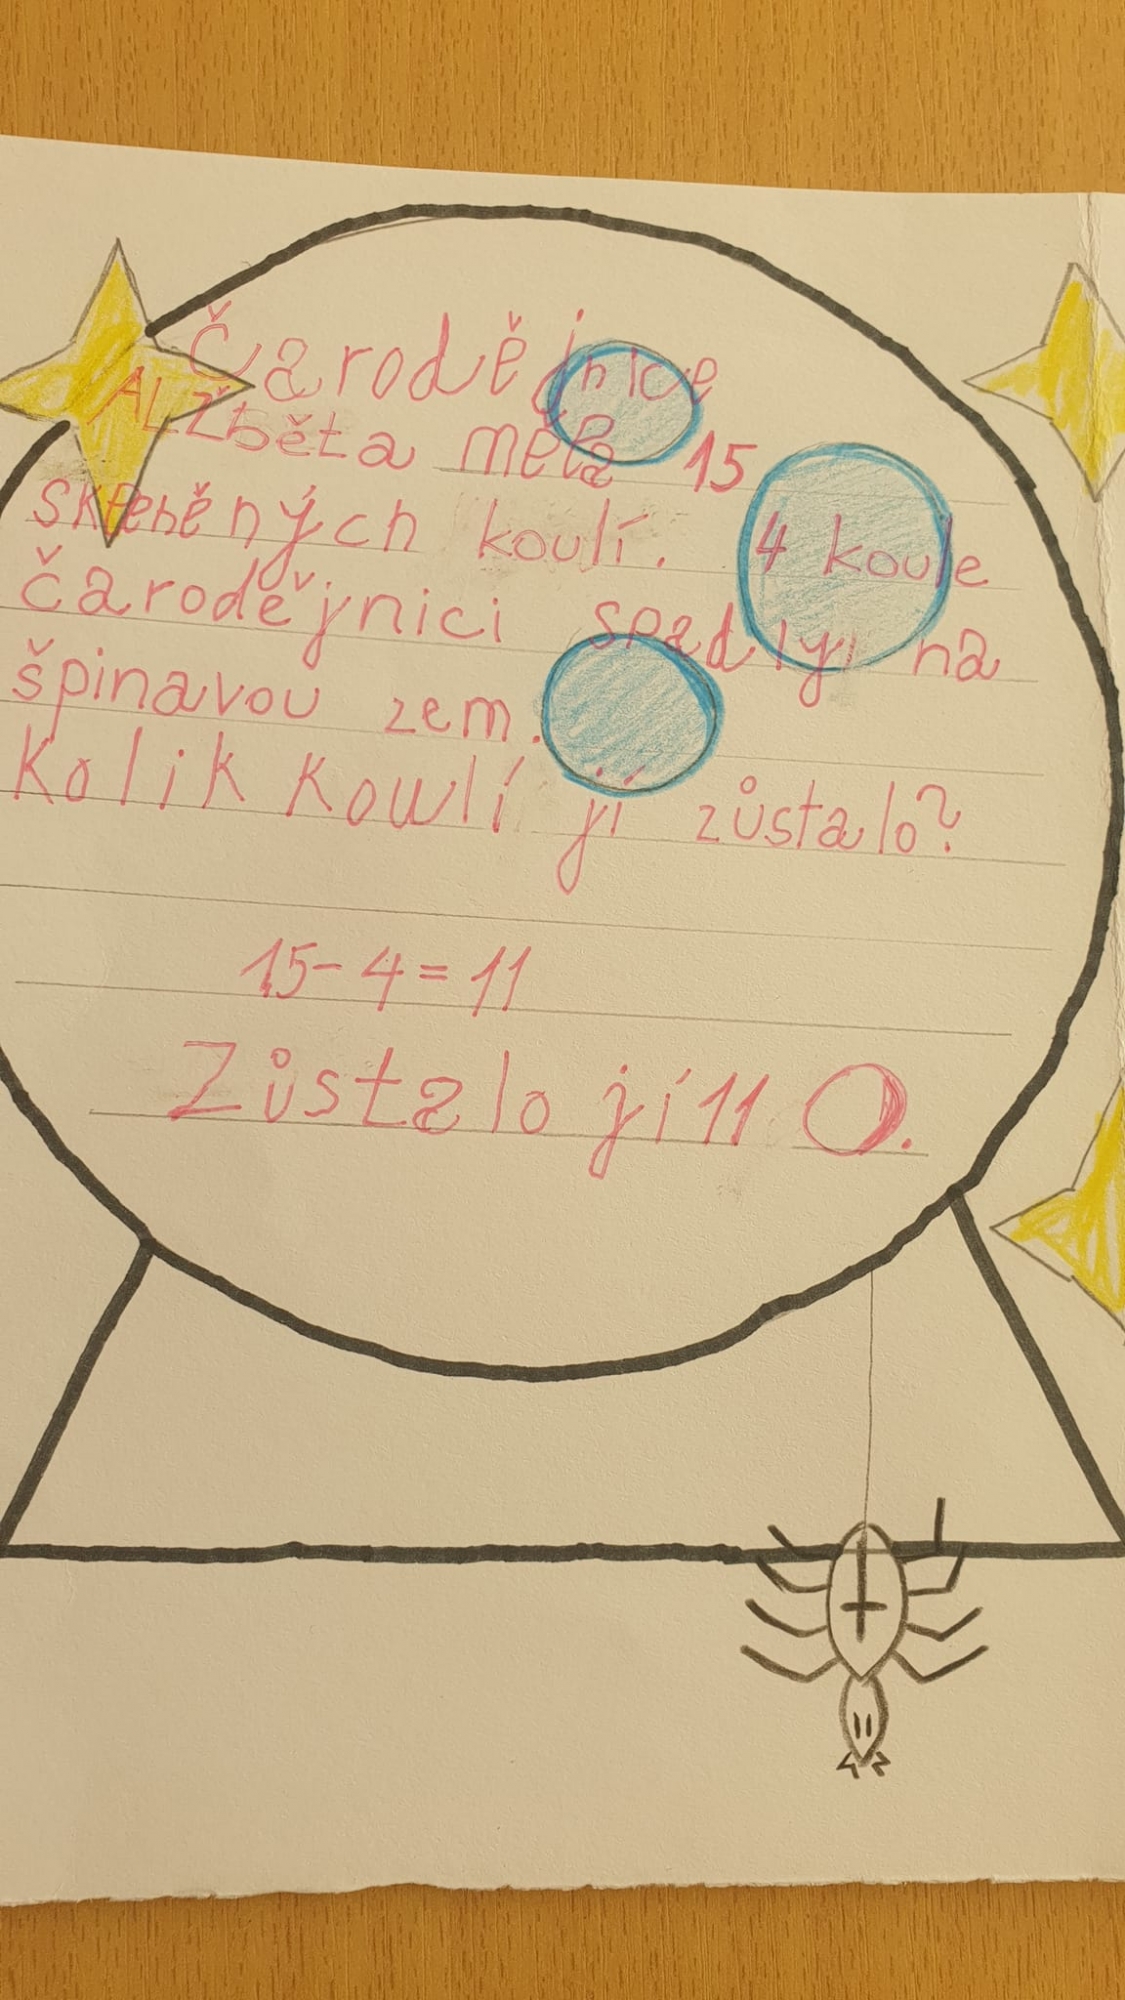 Čarodějnice
Alžběta měla 15
skleněných koulí. 4 koule
čarodějnici spadly na
špinavou zem.
Kolik koulí jí zůstalo?
15-4=11
Zůstalo jí 11 O.